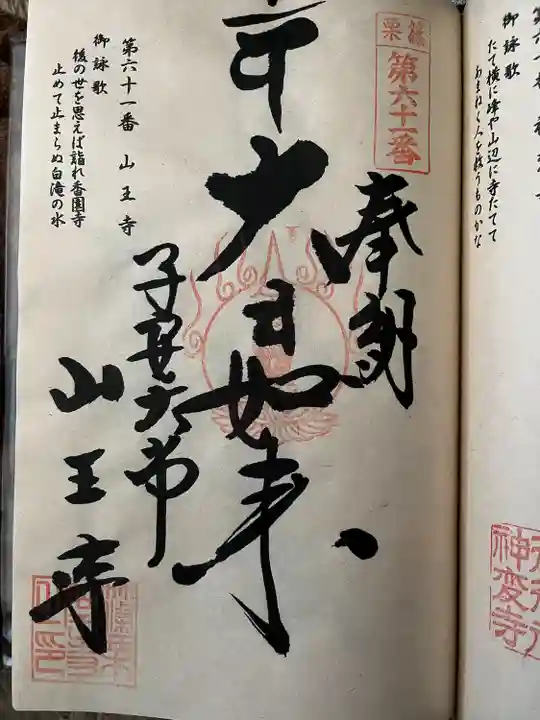 たて横に峰や山辺に寺たてて
あまねく人を救うものかな
神変寺
篠栗
第六十一番
奉納
大日如来
子安大師
山王寺
第六十一番 山王寺
御詠歌
後の世を思えば詣れ香園寺
止めて止まらぬ白滝の水